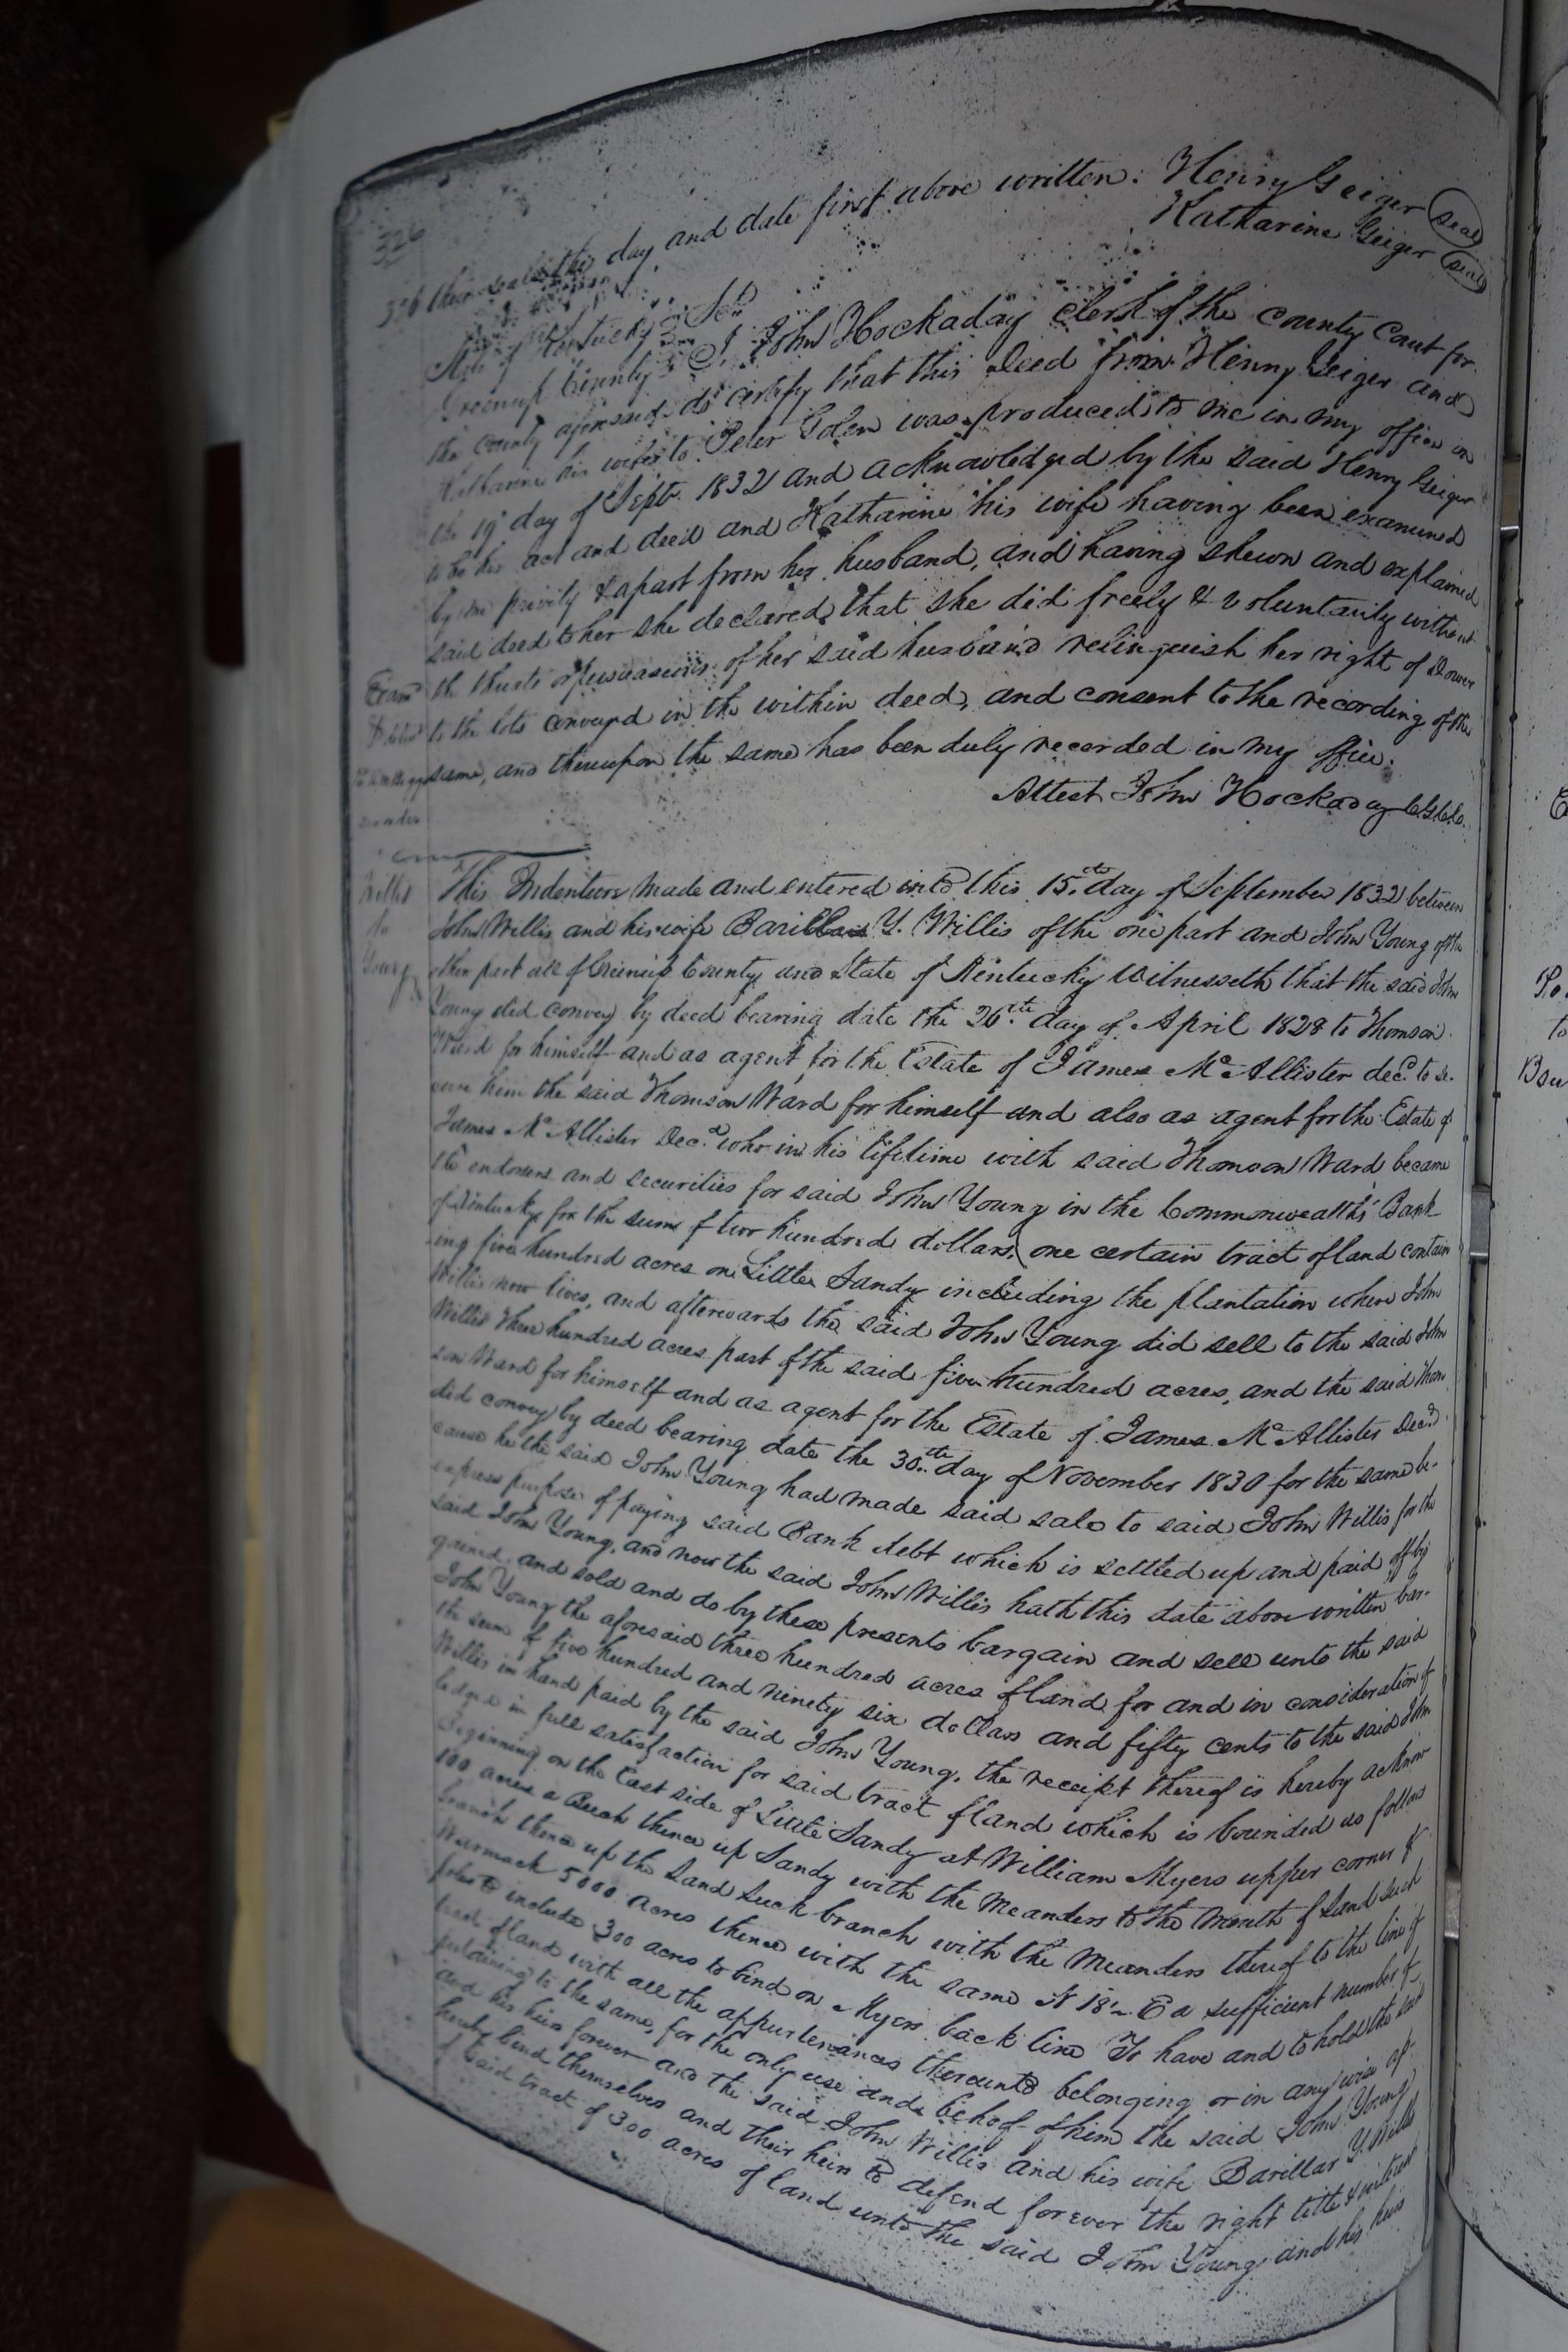 326
326 their seals the day and date first above written. Henry Geiger (seal)
Katharine Geiger (seal)
State of Kentucky Sct
Greenup County I John Hockaday Clerk of the County Court for
the County aforesaid do certify that this Deed from Henry Geiger and
Katharine his wife to Peter Golen was produced to me in my office on
the 19th day of Septr. 1832 and acknowledged by the said Henry Geiger
to be his act and deed and Katharine his wife having been examined
by me privily & apart from her husband, and having shewn and explained
said deed to her she declared that she did freely & voluntarily without
the thrats or pursuasions of her said husband relinquish her right of Dower
to the lots conveyed in the within deed, and consent to the recording of the
same, and thereupon the same has been duly recorded in my office.
Attest John Hockaday C.G.C.C.
Examd
Willis
to
Young
This Indenture made and entered into this 15th day of September 1832 between
John Willis and his wife Barillai Y. Willis of the one part and John Young of the
other part all of Greenup County and State of Kentucky Witnesseth that the said John
Young did convey by deed bearing date the 26th day of April 1828 to Thomson
Ward for himself and as agent for the Estate of James McAllister decd. to se-
cure him the said Thomson Ward for himself and also as agent for the Estate of
James McAllister Decd. who in his lifetime with said Thomson Ward became
the endorsers and securities for said John Young in the Commonwealths Bank
of Kentucky for the sum of two hundred dollars, one certain tract of land contain
ing five hundred acres on Little Sandy including the plantation where John
Willis now lives, and afterwards the said John Young did sell to the said John
Willis three hundred acres part of the said five hundred acres, and the said Thom
son Ward for himself and as agent for the Estate of James McAllister Decd.
did convey by deed bearing date the 30th day of November 1830 for the same be-
cause he the said John Young had made said sale to said John Willis for the
express purpose of paying said Bank debt which is settled up and paid off by
said John Young, and now the said John Willis hath this date above written bar-
gained and sold and do by these presents bargain and sell unto the said
John Young the aforesaid three hundred acres of land for and in consideration of
the sum of five hundred and ninety six dollars and fifty cents to the said John
Willis in hand paid by the said John Young, the receipt thereof is hereby acknow
ledged in full satisfaction for said tract of land which is bounded as follows
Beginning on the East side of Little Sandy at William Myers upper corner of
100 acres a Beech thence up Sandy with the Meanders to the mouth of Sand Suck
branch thence up the Sand Suck branch with the Meanders thereof to the line of
Warmack 5000 acres thence with the same N 18 E a sufficient number of
poles to include 300 acres to bind on Myers back line To have and to hold the said
tract of land with all the appurtenances thereunto belonging or in any wise ap-
pertaining to the same, for the only use and behoof of him the said John Young
and his heirs forever and the said John Willis and his wife Barillar Y. Willis
hereby bind themselves and their heirs to defend forever the right title & interest
of said tract of 300 acres of land unto the said John Young and his heirs